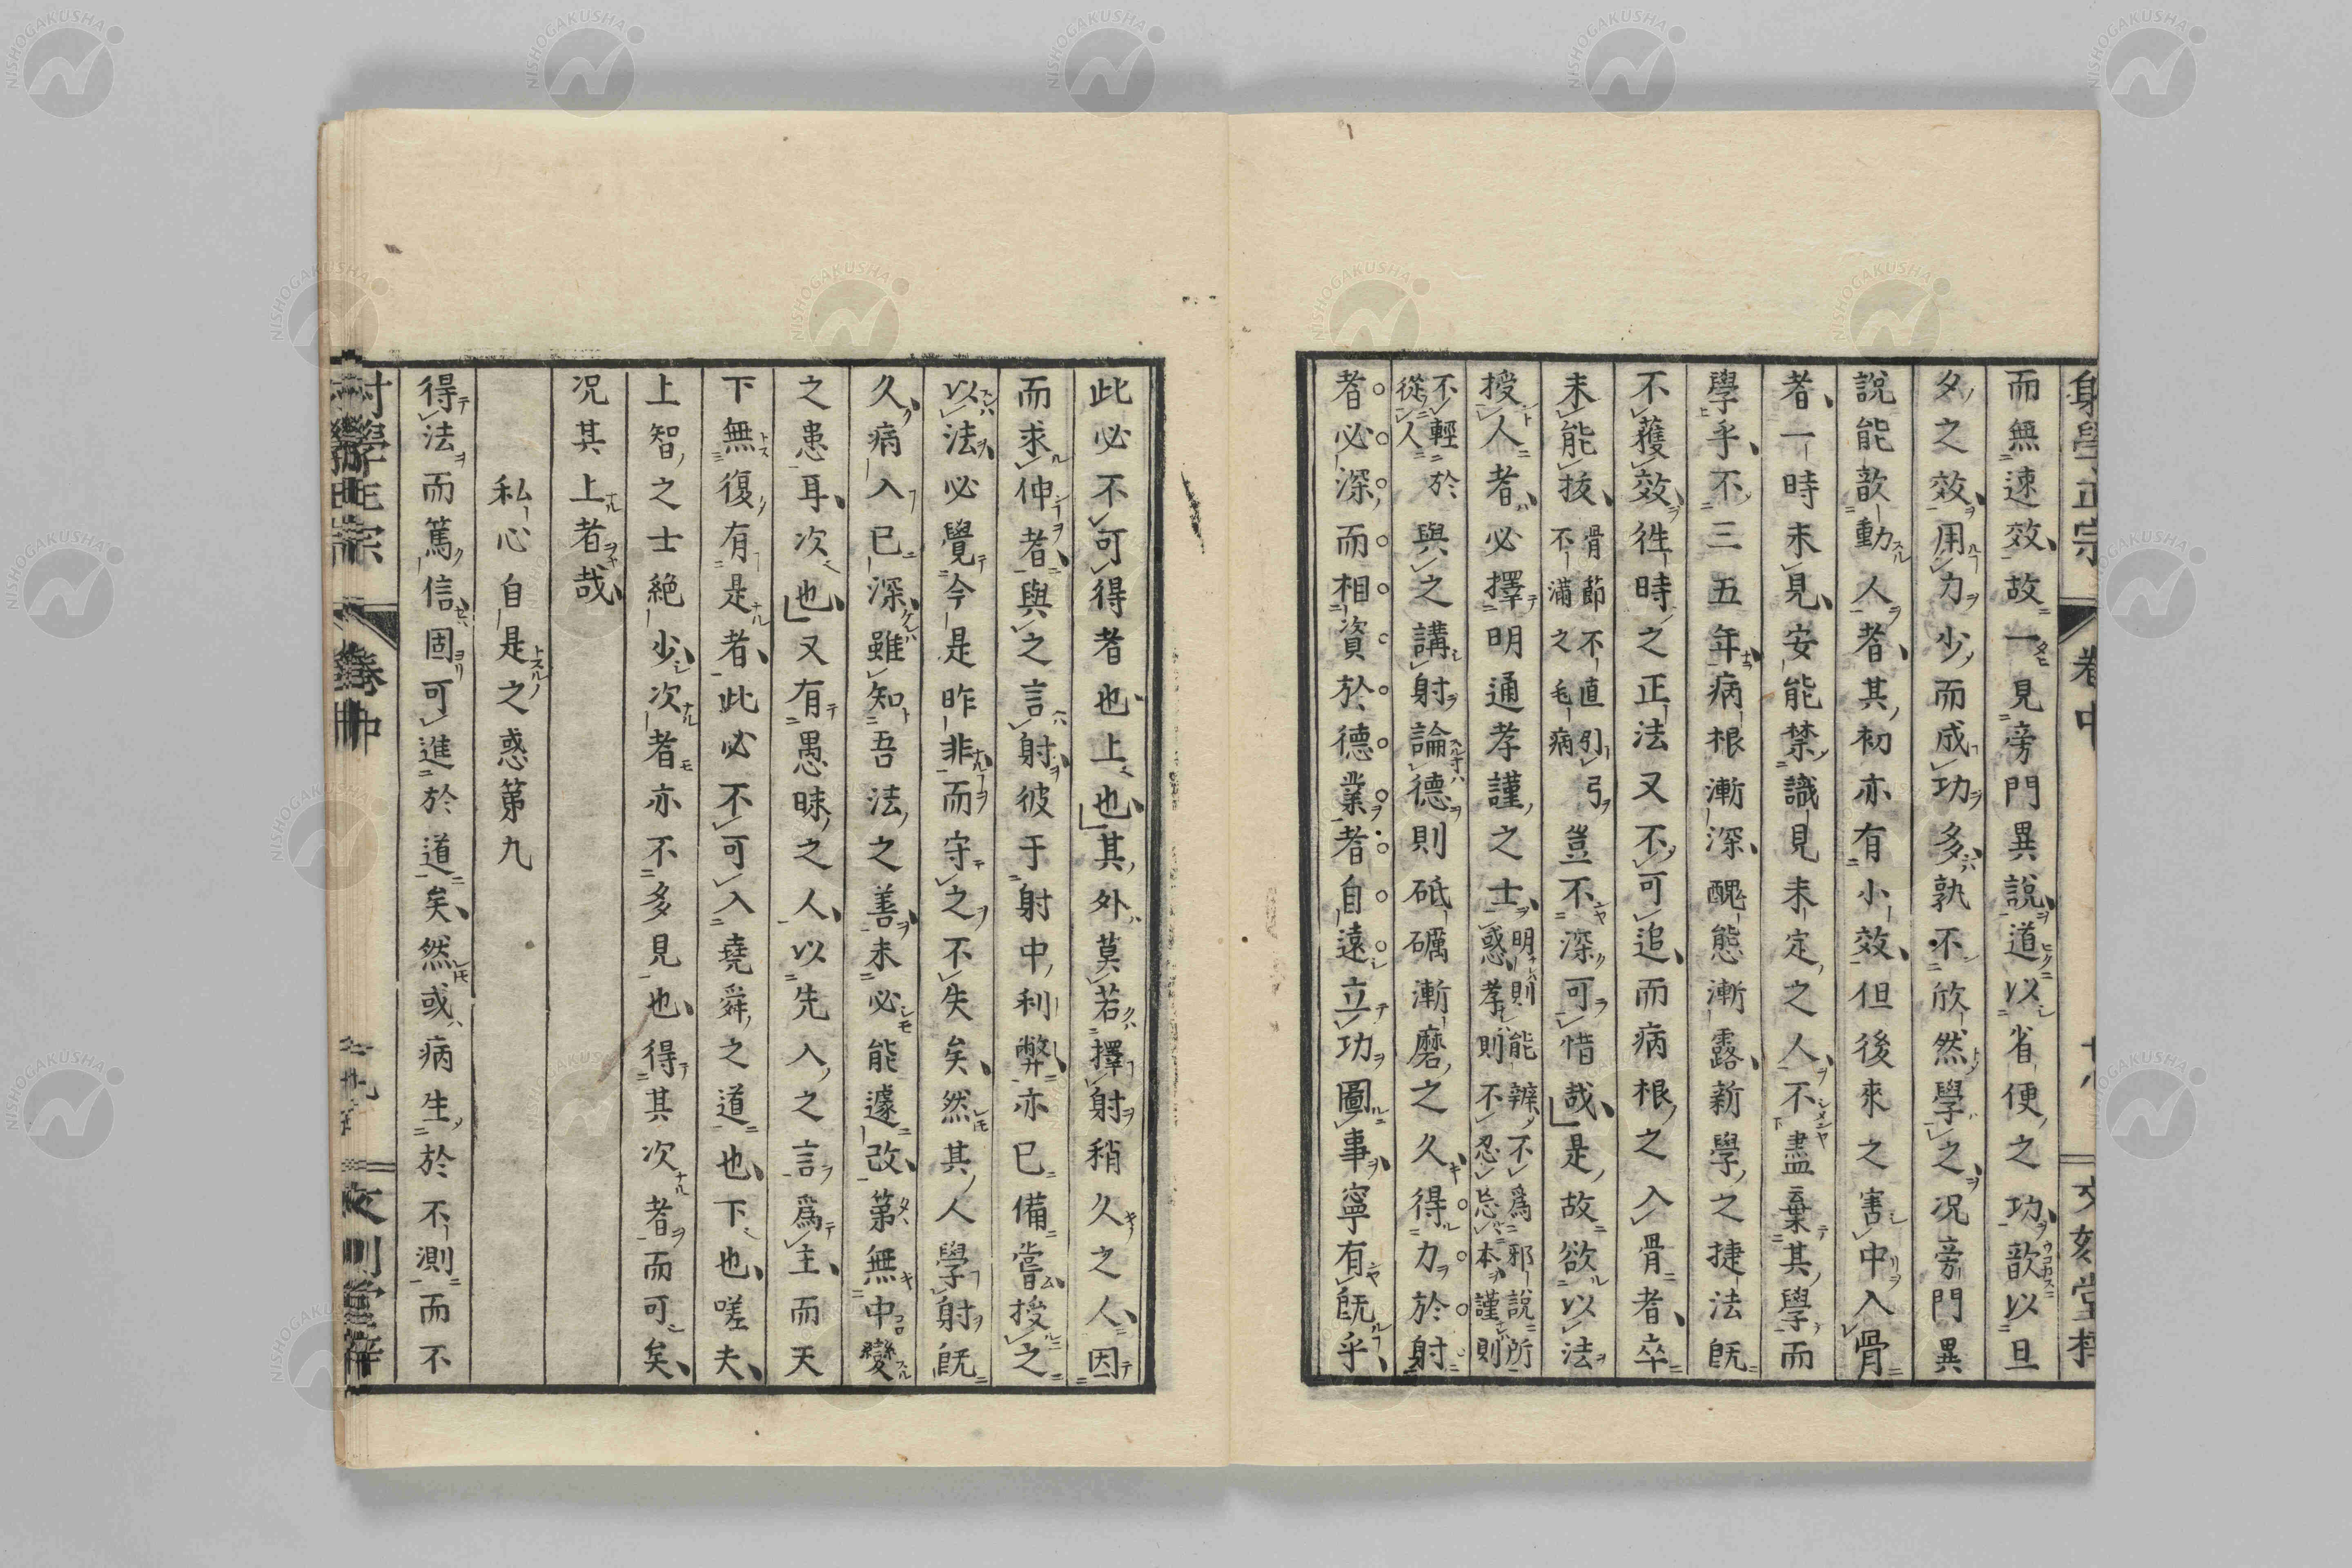 而無速效故一見旁門異說道以省便之功歆以旦
夕之效用力少而成功多孰不欣然學之况旁門異
說能歆動人者其初亦有小效但後來之害中入骨
者一時未見安能禁識見未定之人不盡棄其學而
學乎不三五年病根漸深醜態漸露新學之捷法旣
不獲效徃時之正法又不可追而病根之入骨者卒
未能拔骨節不直引弓不滿之毛病豈不深可惜哉是故欲以法
授人者必擇明通孝謹之士明則能辨不爲邪說所惑孝則不忍忘本謹則
不輕於從人與之講射論德則砥礪漸磨之久得力於射
者必深而相資於德業者自遠立功圖事寧有旣乎
此必不可得者也上也其外莫若擇射稍久之人因
而求伸者與之言射彼于射中利弊亦已備嘗授之
以法必覺今是昨非而守之不失矣然其人學射旣
久病入已深雖知吾法之善未必能遽改第無中變
之患耳次也又有愚昧之人以先入之言爲主而天
下無復有是者此必不可入堯舜之道也下也嗟夫
上智之士絕少次者亦不多見也得其次者而可矣
况其上者哉
私心自是之惑第九
得法而篤信固可進於道矣然或病生於不測而不
射學正宗
卷中
NISHOGAKUSHA